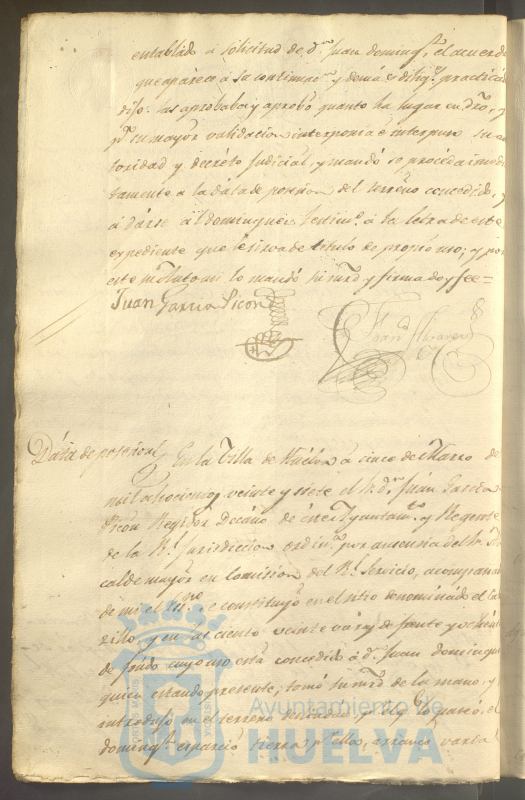 entablado a solicitud de dn Juan Doming.z el acuerdo
que aparece a su continuac.n y demas dilig.s practicad
dijo: las aprobaba y aprobó quanto ha lugar en dro, y
p.a su mayor validacion interponia e interpuso su au
toridad y decreto judicial, y mandó se proceda inmedia
tamente a la dáta de posesion del terreno concedido, y
á dárse al Dominguez testim.o á la letra de este
expediente que le sirva de titulo de propiedad; y por
este su auto asi lo mandó su mrd y firma doy fee=
Juan Garcia Picon
Fran.co Alvarez
Dáta de posesion
En la Villa de Huelva á cinco de Marzo de
mil ochocientos veinte y siete el S.r D.n Juan Garcia
Picon Regidor Decano de este Ayuntam.to y Regente
de la R.l Jurisdiccion ordin.a por ausencia del S.r Al
calde mayor en comision del R.l Servicio, acompañado
de mi el Ess.no se constituyó en el sitio denominado el
y en las ciento veinte váras de frente y ochenta
de fondo cuyo uso está concedido á d.n Juan Doming.z
quien estando presente, tomó su mrd de la mano, y
introdujo en el terreno y el
Doming.z esparció tierra p.r ellos, arrancó varia
Ayuntamiento de
HUELVA